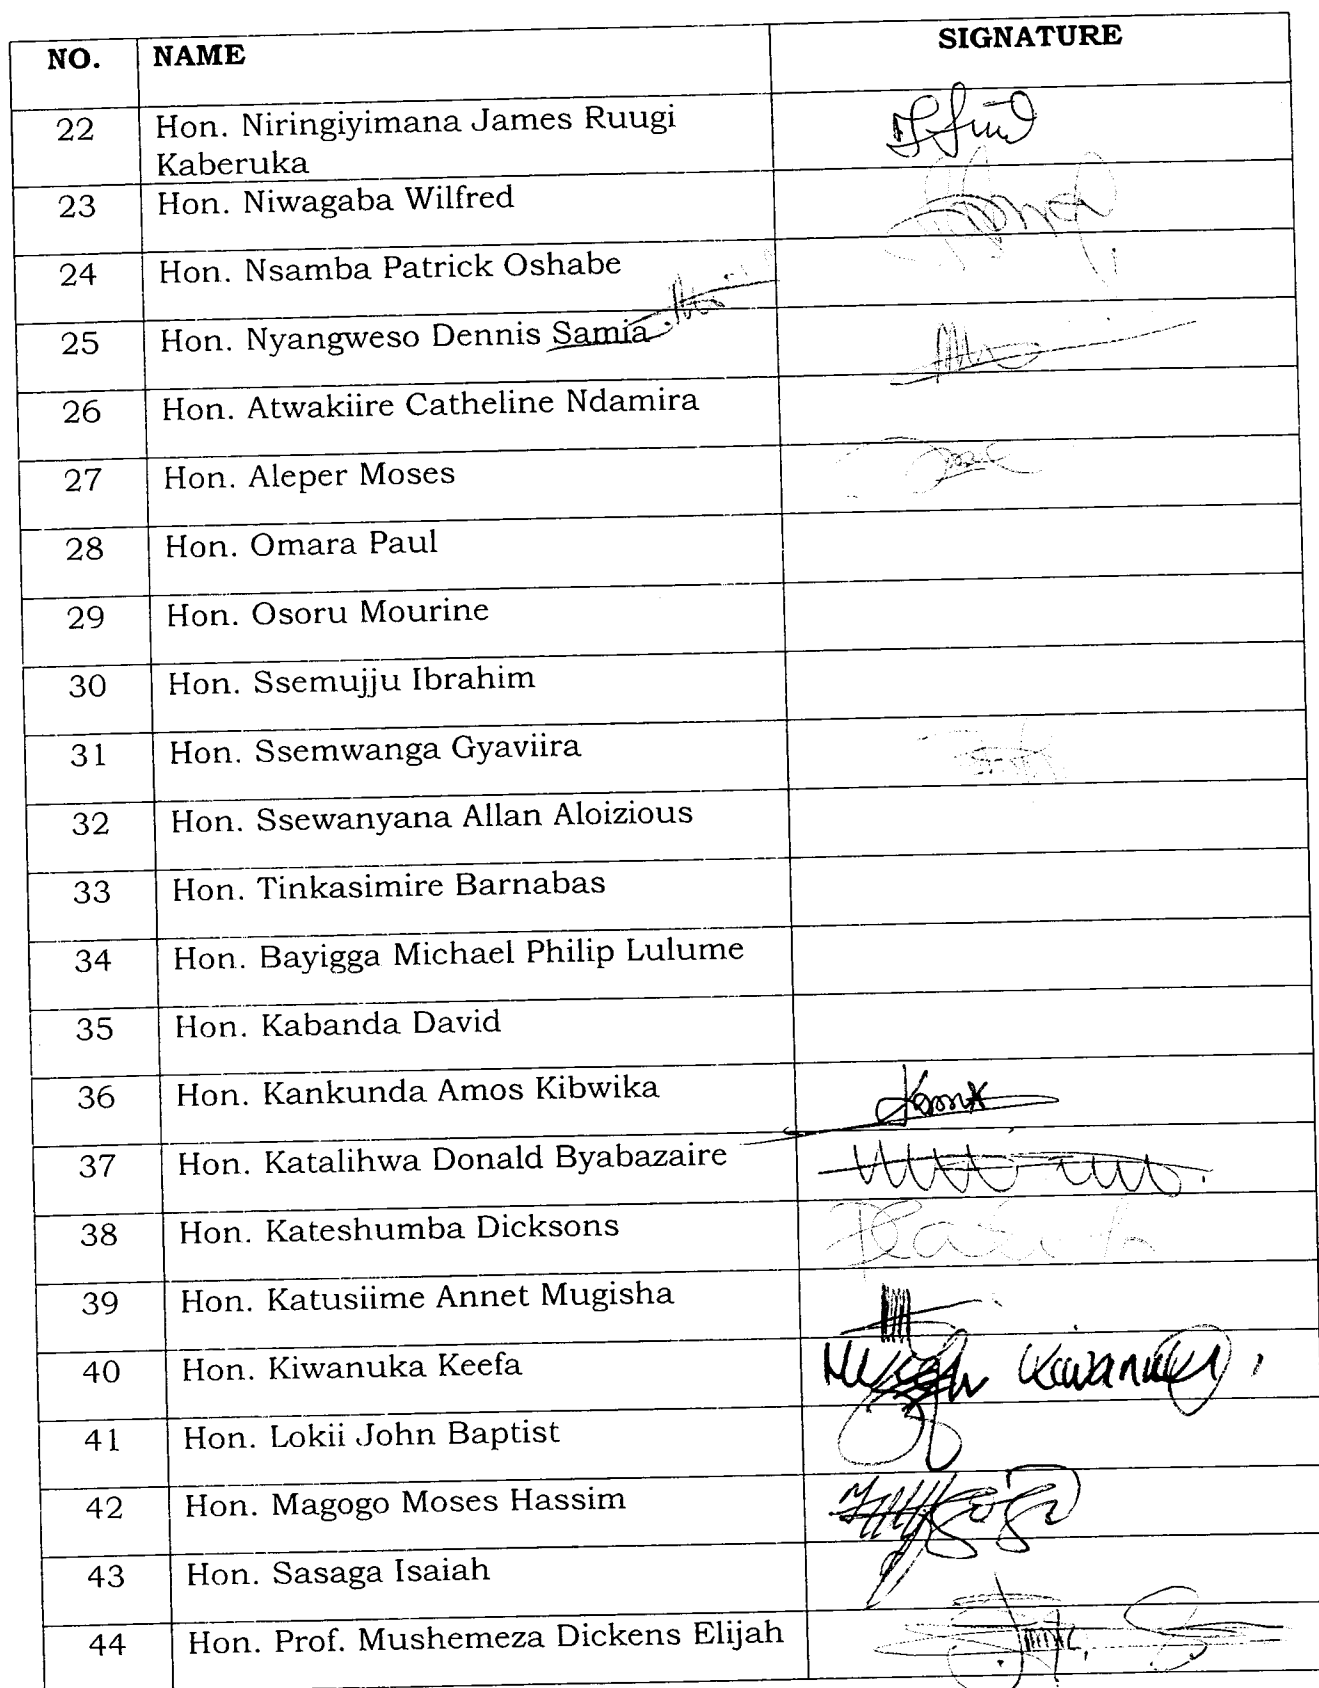 NO. NAME SIGNATURE
22 Hon. Niringiyimana James Ruugi
Kaberuka
23 Hon. Niwagaba Wilfred
24 Hon. Nsamba Patrick Oshabe
25 Hon. Nyangweso Dennis Samia
26 Hon. Atwakiire Catheline Ndamira
27 Hon. Aleper Moses
28 Hon. Omara Paul
29 Hon. Osoru Mourine
30 Hon. Ssemujju Ibrahim
31 Hon. Ssemwanga Gyaviira
32 Hon. Ssewanyana Allan Aloizious
33 Hon. Tinkasimire Barnabas
34 Hon. Bayigga Michael Philip Lulume
35 Hon. Kabanda David
36 Hon. Kankunda Amos Kibwika
37 Hon. Katalihwa Donald Byabazaire
38 Hon. Kateshumba Dicksons
39 Hon. Katusiime Annet Mugisha
40 Hon. Kiwanuka Keefa Kiwanuka
41 Hon. Lokii John Baptist
42 Hon. Magogo Moses Hassim
43 Hon. Sasaga Isaiah
44 Hon. Prof. Mushemeza Dickens Elijah